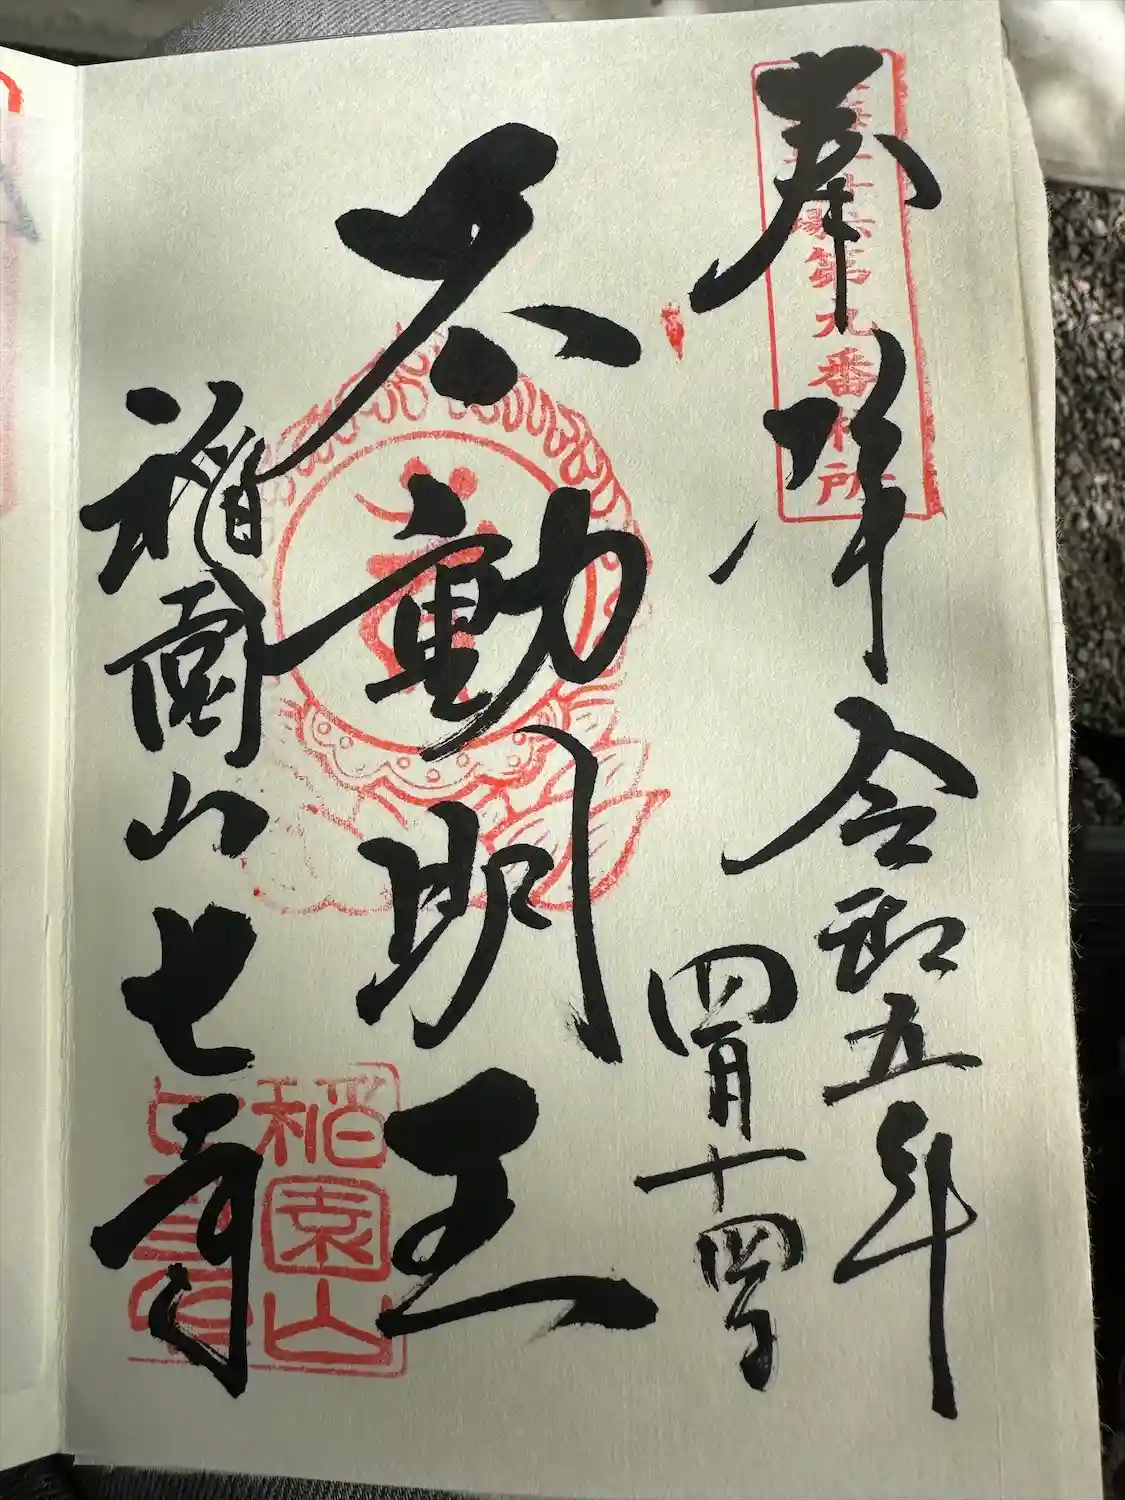 奉拜
第九番札所
令和五年
四月十四日
不動明王
稲園山七寺
稲園山
七寺